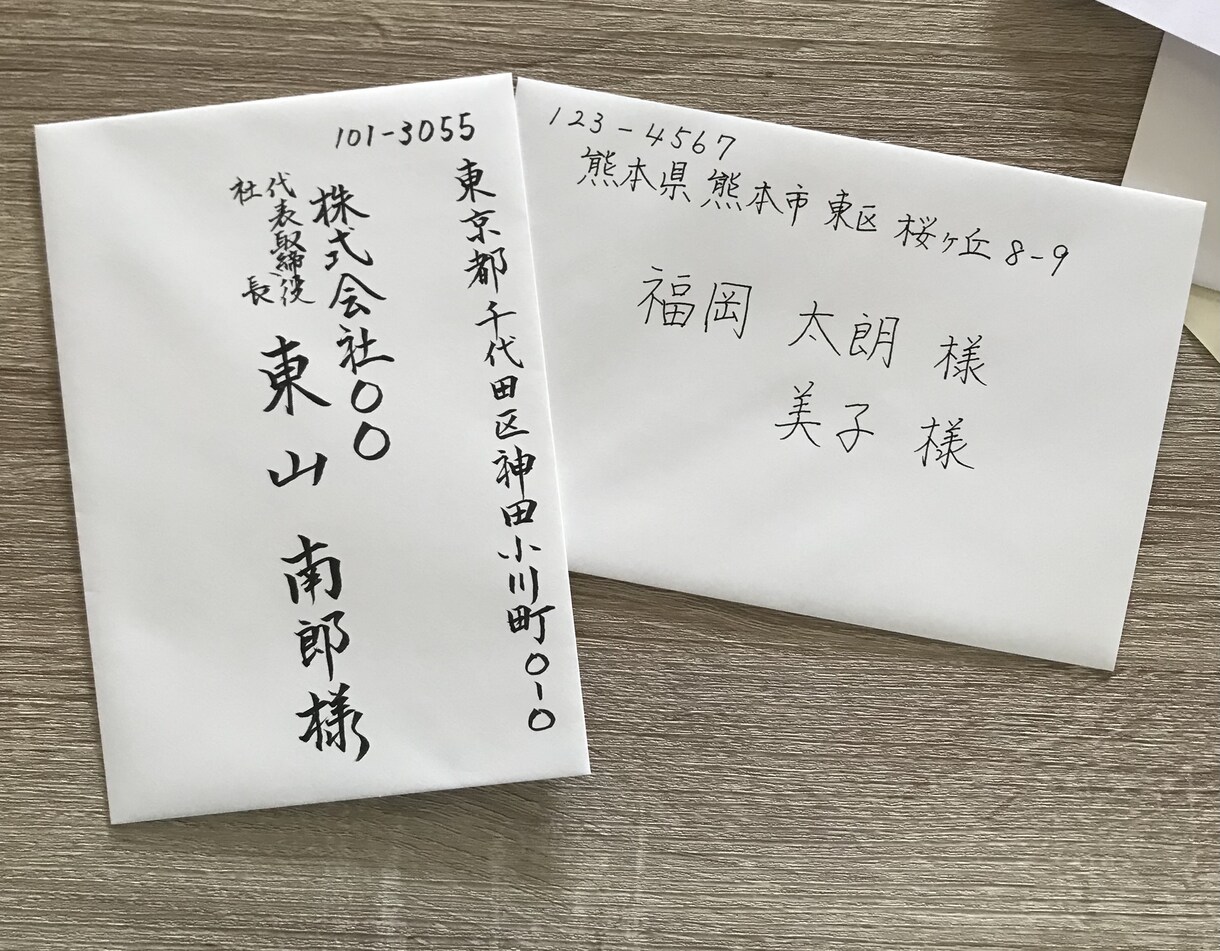 101-3055
東京都千代田区神田小川町0-0
株式会社〇〇
代表取締役
社長
東山 南郎様
123-4567
熊本県熊本市東区桜ヶ丘8-9
福岡 太朗 様
美子 様